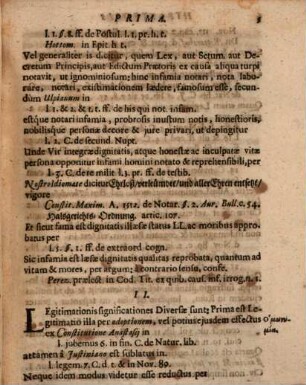 PRIMA. 5
l. 1. §. 1. ff. de Postul. l. 1. pr. h. t.
Hottom. in Epit. h. t.
Vel generaliter is dicitur, quem Lex, aut Sctum. aut Decretum Principis, aut Edictum Prætoris ex causa aliqua turpi
notavit, ut ignominiosum; hinc infamia notari, nota laborare, notari, existimationem lædere, famosum esse, secundum
Ulpianum in
l. 1. & 2. & t. t. ff. de his qui not. infam.
estque notari infamia, probrosis inustum notis, honestioris,
nobilisque personæ decore & jure privari, ut depingitur
l. 2. C. de secund. Nupt.
Unde Vir integræ dignitatis, atque honestæ ac inculpatæ vitæ
persona opponitur infami homini notato & reprehensibili, per
l. 9. C. de re milit l. 13. pr. ff. de testib.
Nostro Idiomate dicitur Ehrloß/ verleumbter/ und aller Ehren entsetzt/
vigore
Constit. Maxim. A. 1512. de Notar. §. 2. Aur. Bull. c. 54.
Halsgerichts-Ordnung. artic. 107.
Et sicut fama est dignitatis illæsæ status LL. ac moribus approbatus per
l. 5. §. 1. ff. de extraord cogn.
Sic infamia est læsæ dignitatis qualitas reprobata, quantum ad
vitam & mores, per argum; à contrario sensu, conf.
Perez. prælect. in Cod. Tit. ex quib. caus. inf. irrog. n. 1.
II.
LEgitimationis significationes Diversæ sunt; Prima est Legitimatio illa per adoptionem, vel potius ejusdem effectus
ex Constitutione Anastasij in
l. jubemus 6. in fin. C. de Natur. lib.
attamen à Justiniano est sublatus in
l. legem 7. C. d. t. & in Nov. 89.
Neque idem modus videtur esse reductus per